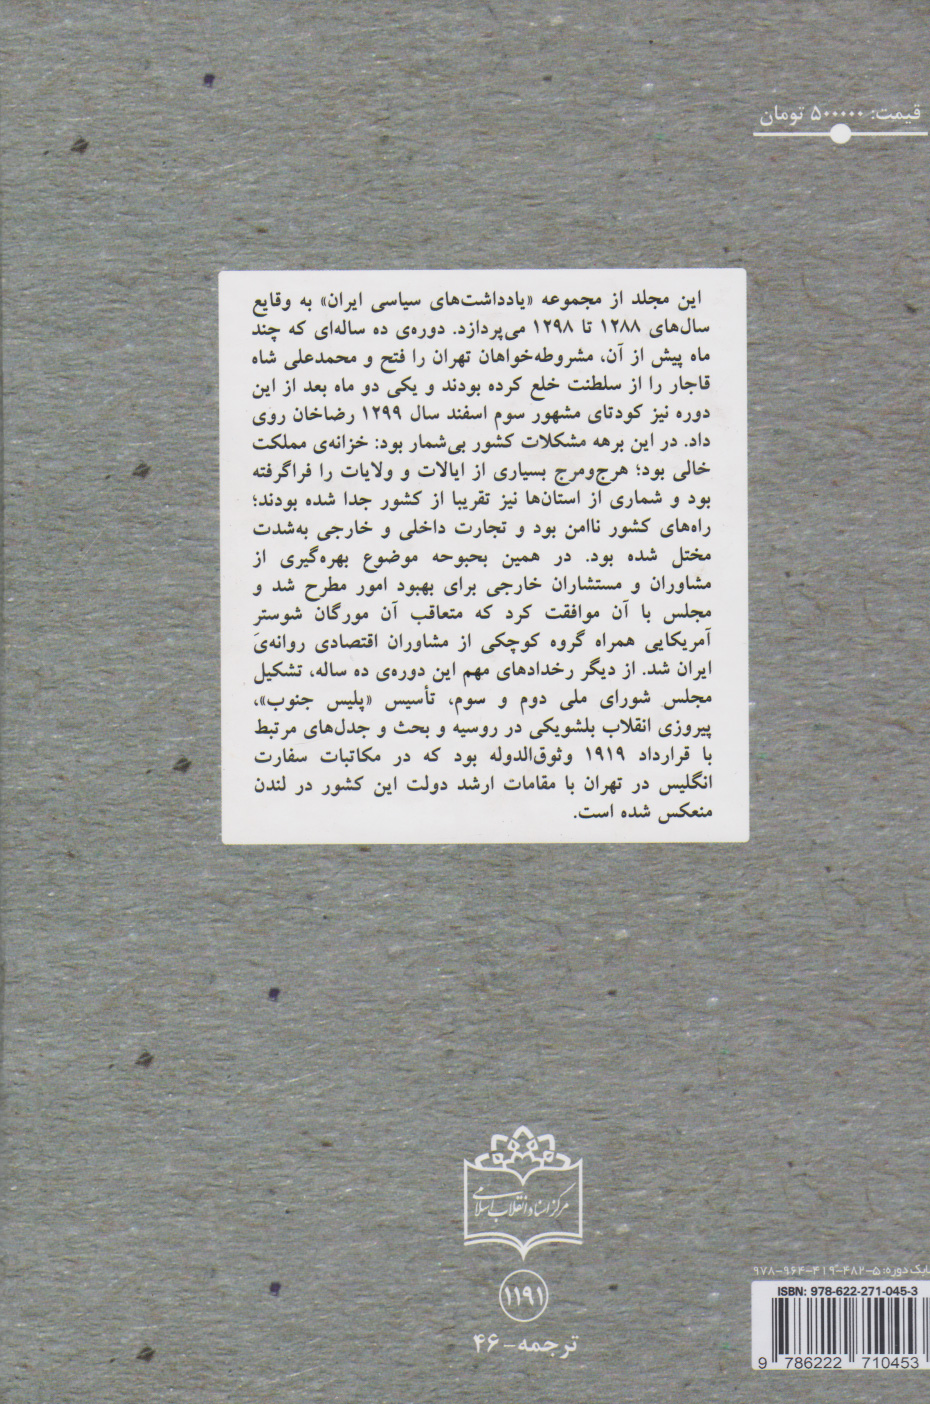 قیمت: ۵۰۰۰۰۰ تومان
این مجلد از مجموعه «یادداشت‌های سیاسی ایران» به وقایع
سال‌های ۱۲۸۸ تا ۱۲۹۸ می‌پردازد. دوره‌ی ده ساله‌ای که چند
ماه پیش از آن، مشروطه‌خواهان تهران را فتح و محمدعلی شاه
قاجار را از سلطنت خلع کرده بودند و یکی دو ماه بعد از این
دوره نیز کودتای مشهور سوم اسفند سال ۱۲۹۹ رضاخان روی
داد. در این برهه مشکلات کشور بی‌شمار بود: خزانه‌ی مملکت
خالی بود؛ هرج‌ومرج بسیاری از ایالات و ولایات را فراگرفته
بود و شماری از استان‌ها نیز تقریبا از کشور جدا شده بودند؛
راه‌های کشور ناامن بود و تجارت داخلی و خارجی به‌شدت
مختل شده بود. در همین بحبوحه موضوع بهره‌گیری از
مشاوران و مستشاران خارجی برای بهبود امور مطرح شد و
مجلس با آن موافقت کرد که متعاقب آن مورگان شوستر
آمریکایی همراه گروه کوچکی از مشاوران اقتصادی روانه‌یَ
ایران شد. از دیگر رخدادهای مهم این دوره‌ی ده ساله، تشکیل
مجلس شورای ملی دوم و سوم، تأسیس «پلیس جنوب»،
پیروزی انقلاب بلشویکی در روسیه و بحث و جدل‌های مرتبط
با قرارداد ۱۹۱۹ وثوق‌الدوله بود که در مکاتبات سفارت
انگلیس در تهران با مقامات ارشد دولت این کشور در لندن
منعکس شده است.
مرکز اسناد انقلاب اسلامی
۱۱۹۱
ترجمه-۴۶
ابک دوره: ۵-۴۸۲-۴۱۹-۹۶۴-۹۷۸
ISBN: 978-622-271-045-3
9 786222 710453